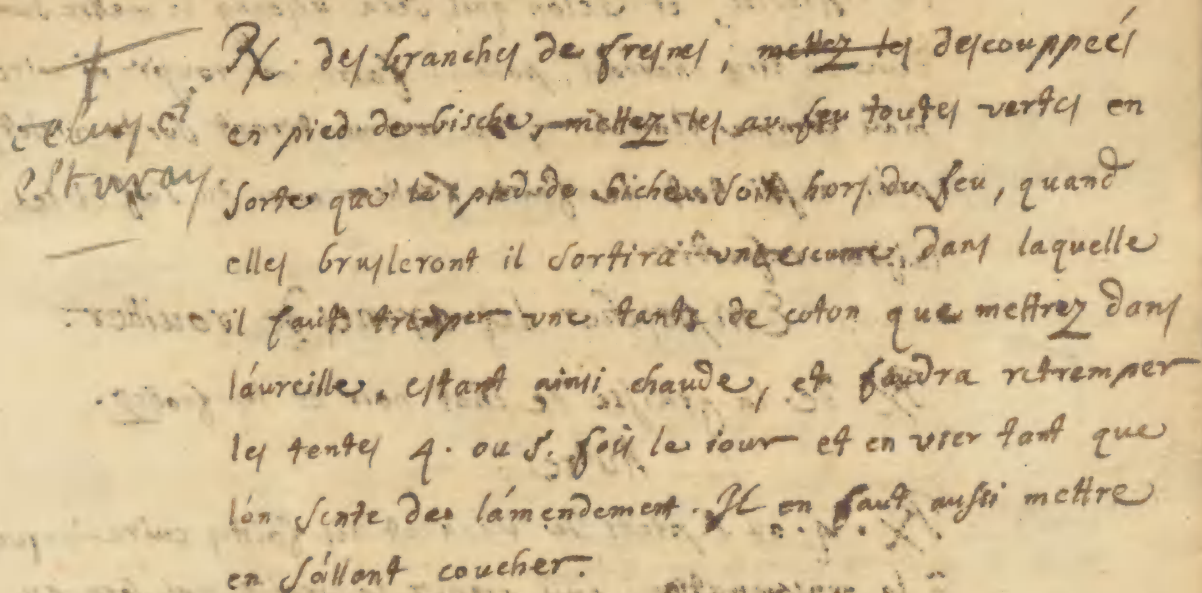 celuy ci
est vray
℞. des branches de fresnes, mettez les descouppées
en pied de bische, mettez les au feu toutes vertes en
sorte que le pied de biche soit hors du feu, quand
elles brusleront il sortira une escume, dans laquelle
il fault tremper une tante de coton que mettrez dans
láureille, estant ainsi chaude, et faudra retremper
les tentes 4. ou 5. fois le iour et en vser tant que
lón sente de lámendement. Il en faut aussi mettre
en sállant coucher.